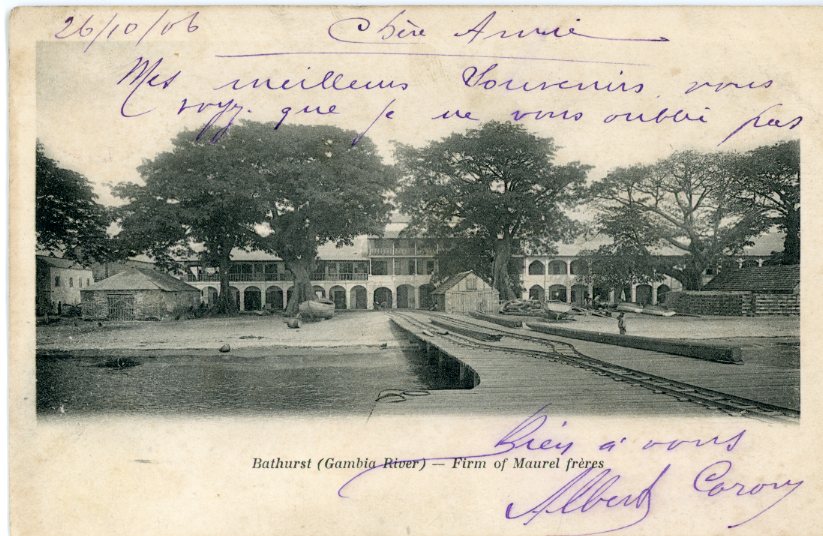 26/10/06
Chère Amie
Mes meilleurs Souvenirs vous
voyz. que je ne vous oubli pas
Bien à vous
Bathurst (Gambia River) — Firm of Maurel frères
Albert